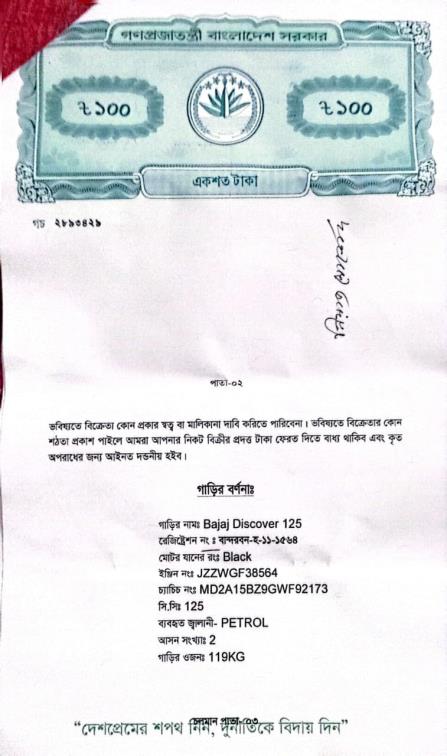 গণপ্রজাতন্ত্রী বাংলাদেশ সরকার
৳১০০
৳১০০
একশত টাকা
গচ ২৮৯৩৪২৯
পাতা-০২
ভবিষ্যতে বিক্রেতা কোন প্রকার স্বত্ব বা মালিকানা দাবি করিতে পারিবেনা। ভবিষ্যতে বিক্রেতার কোন
শঠতা প্রকাশ পাইলে আমরা আপনার নিকট বিক্রীর প্রদত্ত টাকা ফেরত দিতে বাধ্য থাকিব এবং কৃত
অপরাধের জন্য আইনত দন্ডনীয় হইব।
গাড়ির বর্ণনাঃ
গাড়ির নামঃ Bajaj Discover 125
রেজিষ্ট্রেশন নং ঃ বান্দরবন-হ-১১-১৫৬৪
মোটর যানের রংঃ Black
ইঞ্জিন নংঃ JZZWGF38564
চ্যাচিচ নংঃ MD2A15BZ9GWF92173
সি.সিঃ 125
ব্যবহৃত জ্বালানী- PETROL
আসন সংখ্যাঃ 2
গাড়ির ওজনঃ 119KG
চলমান পাতা-০৩
“দেশপ্রেমের শপথ নিন, দুর্নীতিকে বিদায় দিন”